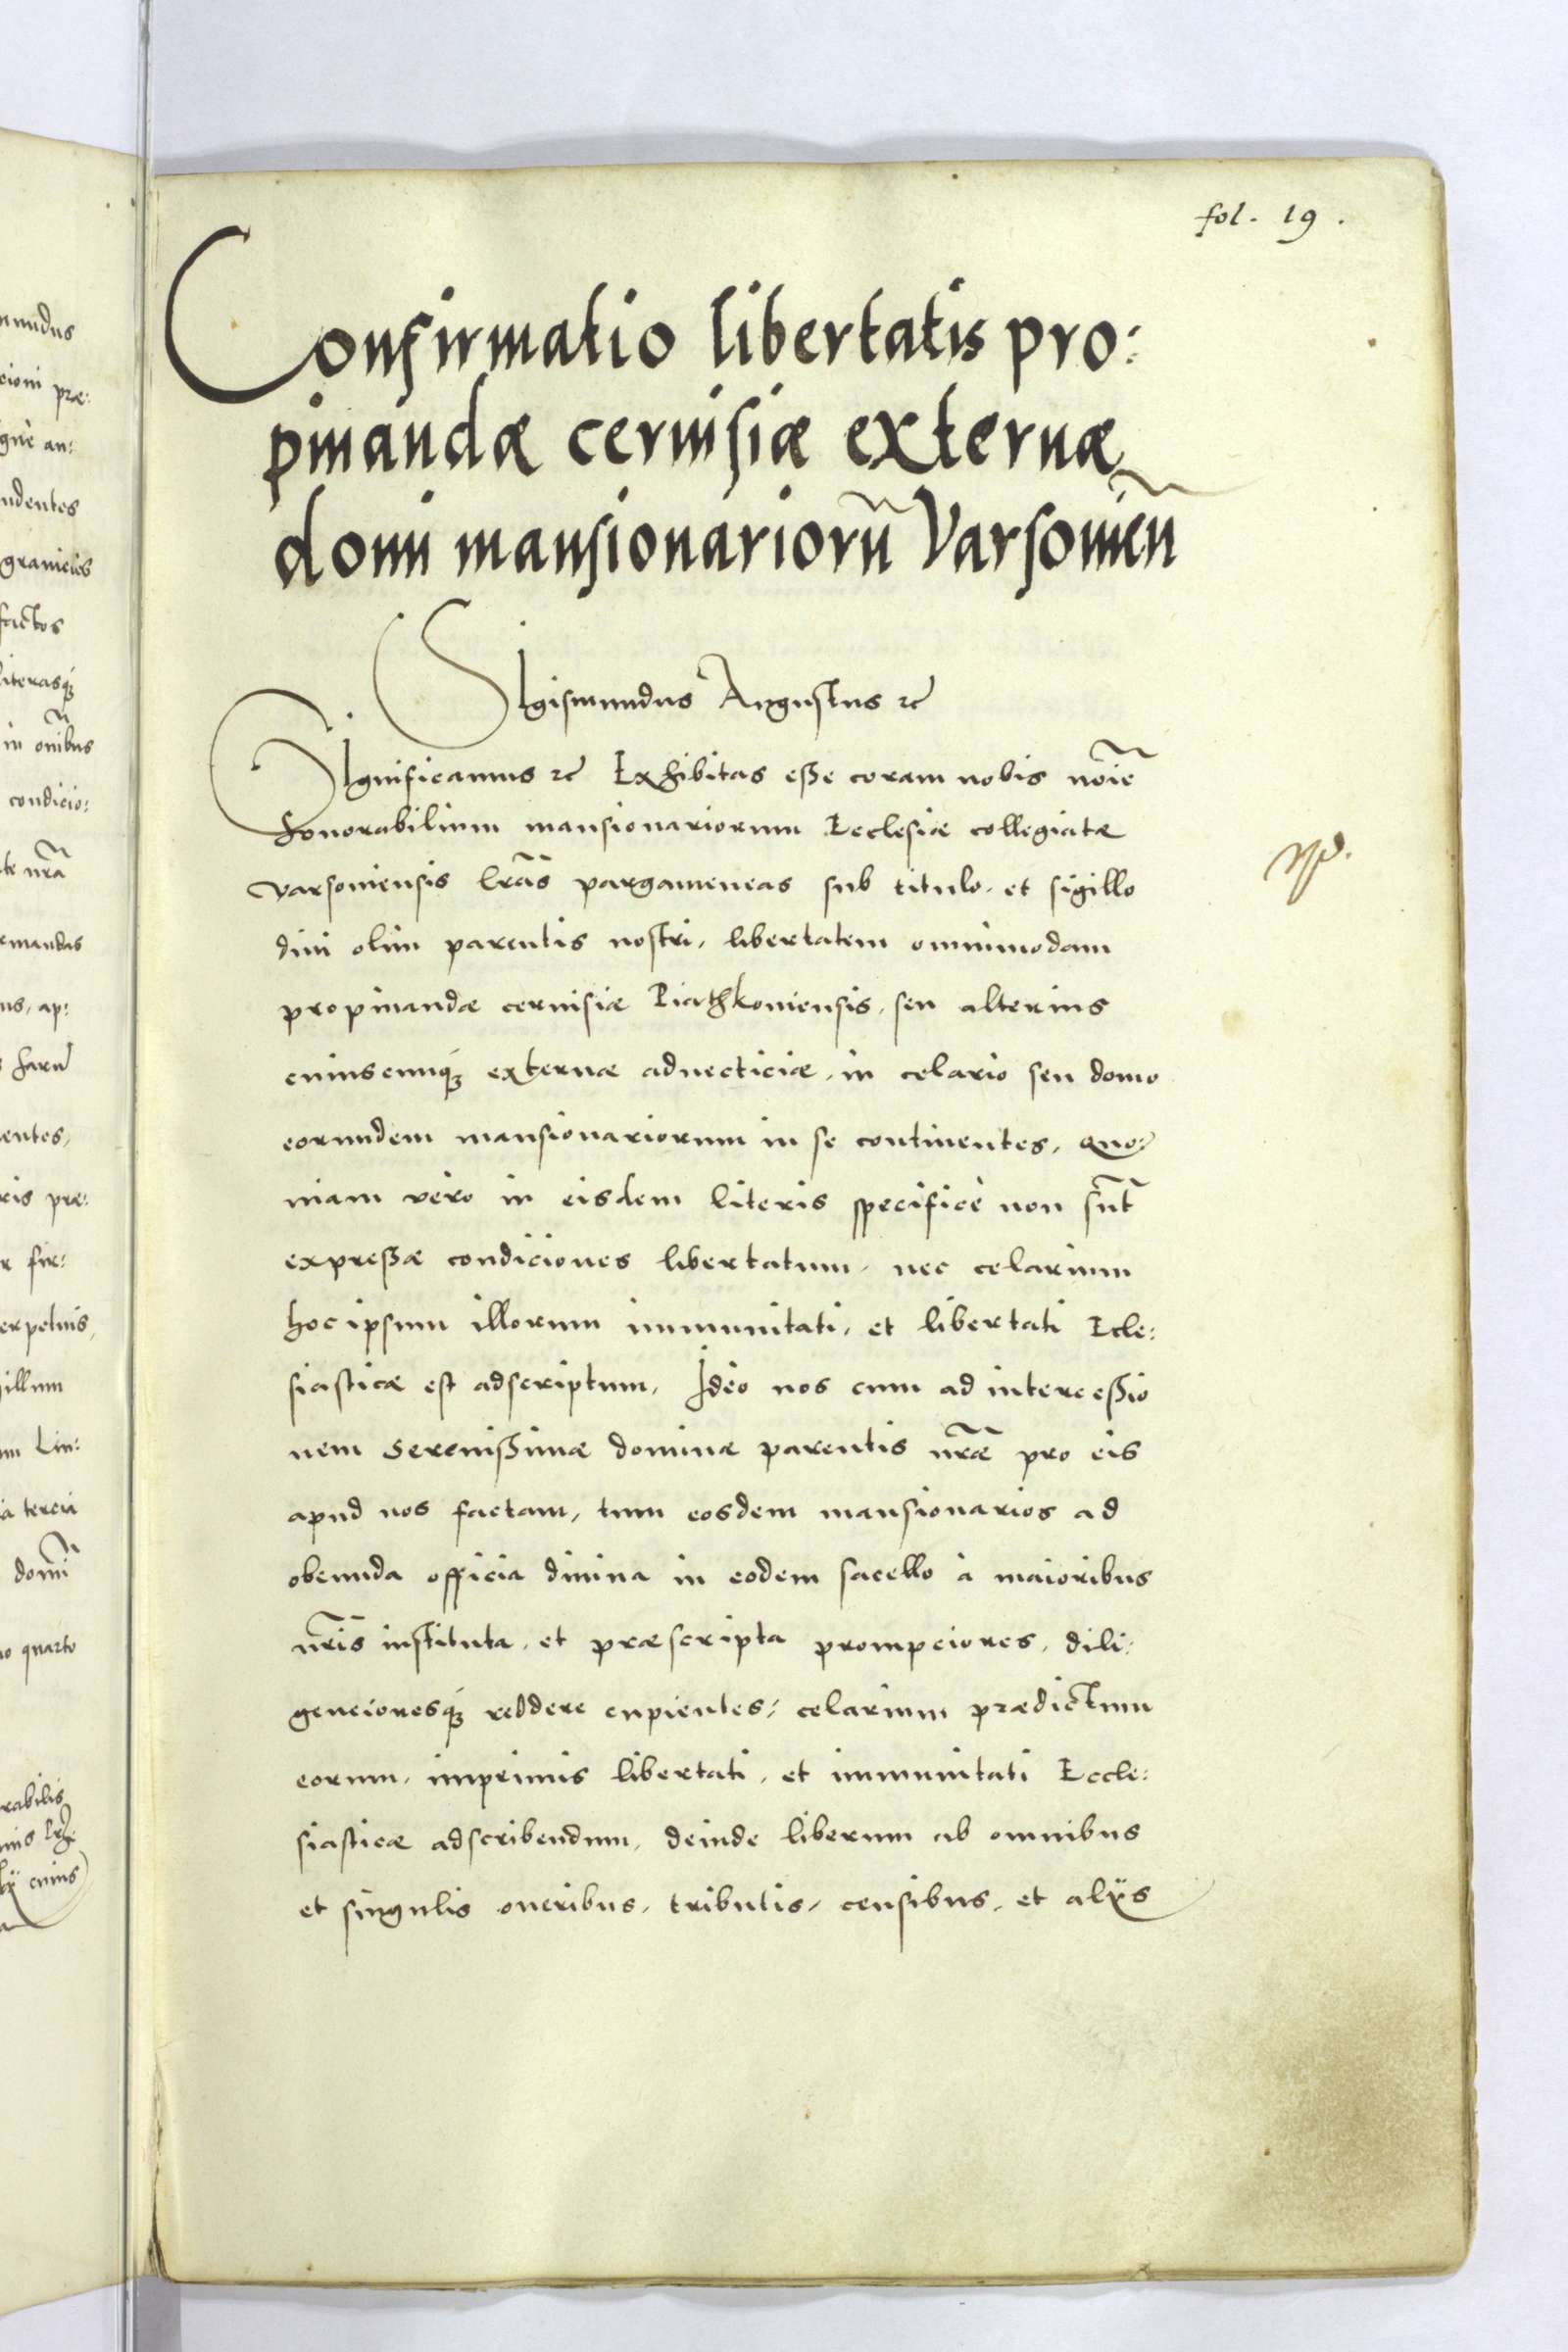 fol. 19.
Confirmatio libertatis pro:
pinandæ cervisiæ externæ
domi mansionariorũ Varsovieñ
Sigismundus Augustus &c
Significamus &c Exhibitas eße coram nobis noĩe
honorabilium mansionariorum Ecclesiæ collegiatæ
varsoviensis lr̃as pargameneas sub titulo et sigillo
divi olim parentis nostri, libertatem omnimodam
propinandæ cervisiæ Piathkoviensis, seu alterius
cuiuscunq₃ externæ advecticiæ, in celario seu domo
eorundem mansionariorum in se continentes, quo:
niam vero in eisdem literis specificè non sũt
expreßæ condiciones libertatum, nec celarium
hoc ipsum illorum immunitati, et libertati Ecle:
siasticæ est adscriptum, Ideo nos cum ad interceßio
nem Serenißimæ dominæ parentis nr̃æ pro eis
apud nos factam, tum eosdem mansionarios ad
obeunda officia divina in eodem sacello à maioribus
nr̃is instituta, et præscripta prompciores, dili:
gencioresq₃ reddere cupientes, celarium prædictum
eorum, imprimis libertati, et immunitati Eccle:
siasticæ adscribendum, deinde liberum ab omnibus
et singulis oneribus, tributis, censibus, et alijs
mundus
cioni præ:
an:
ndentes
granicies
factos
literasq₃
in oñibus
condicio:
te nr̃a
rmandas
ns, ap:
entes,
ris præ:
r fir:
erpetuis,
gillum
um Lin:
ia tercia
domi
no quarto
rabilis
cuius